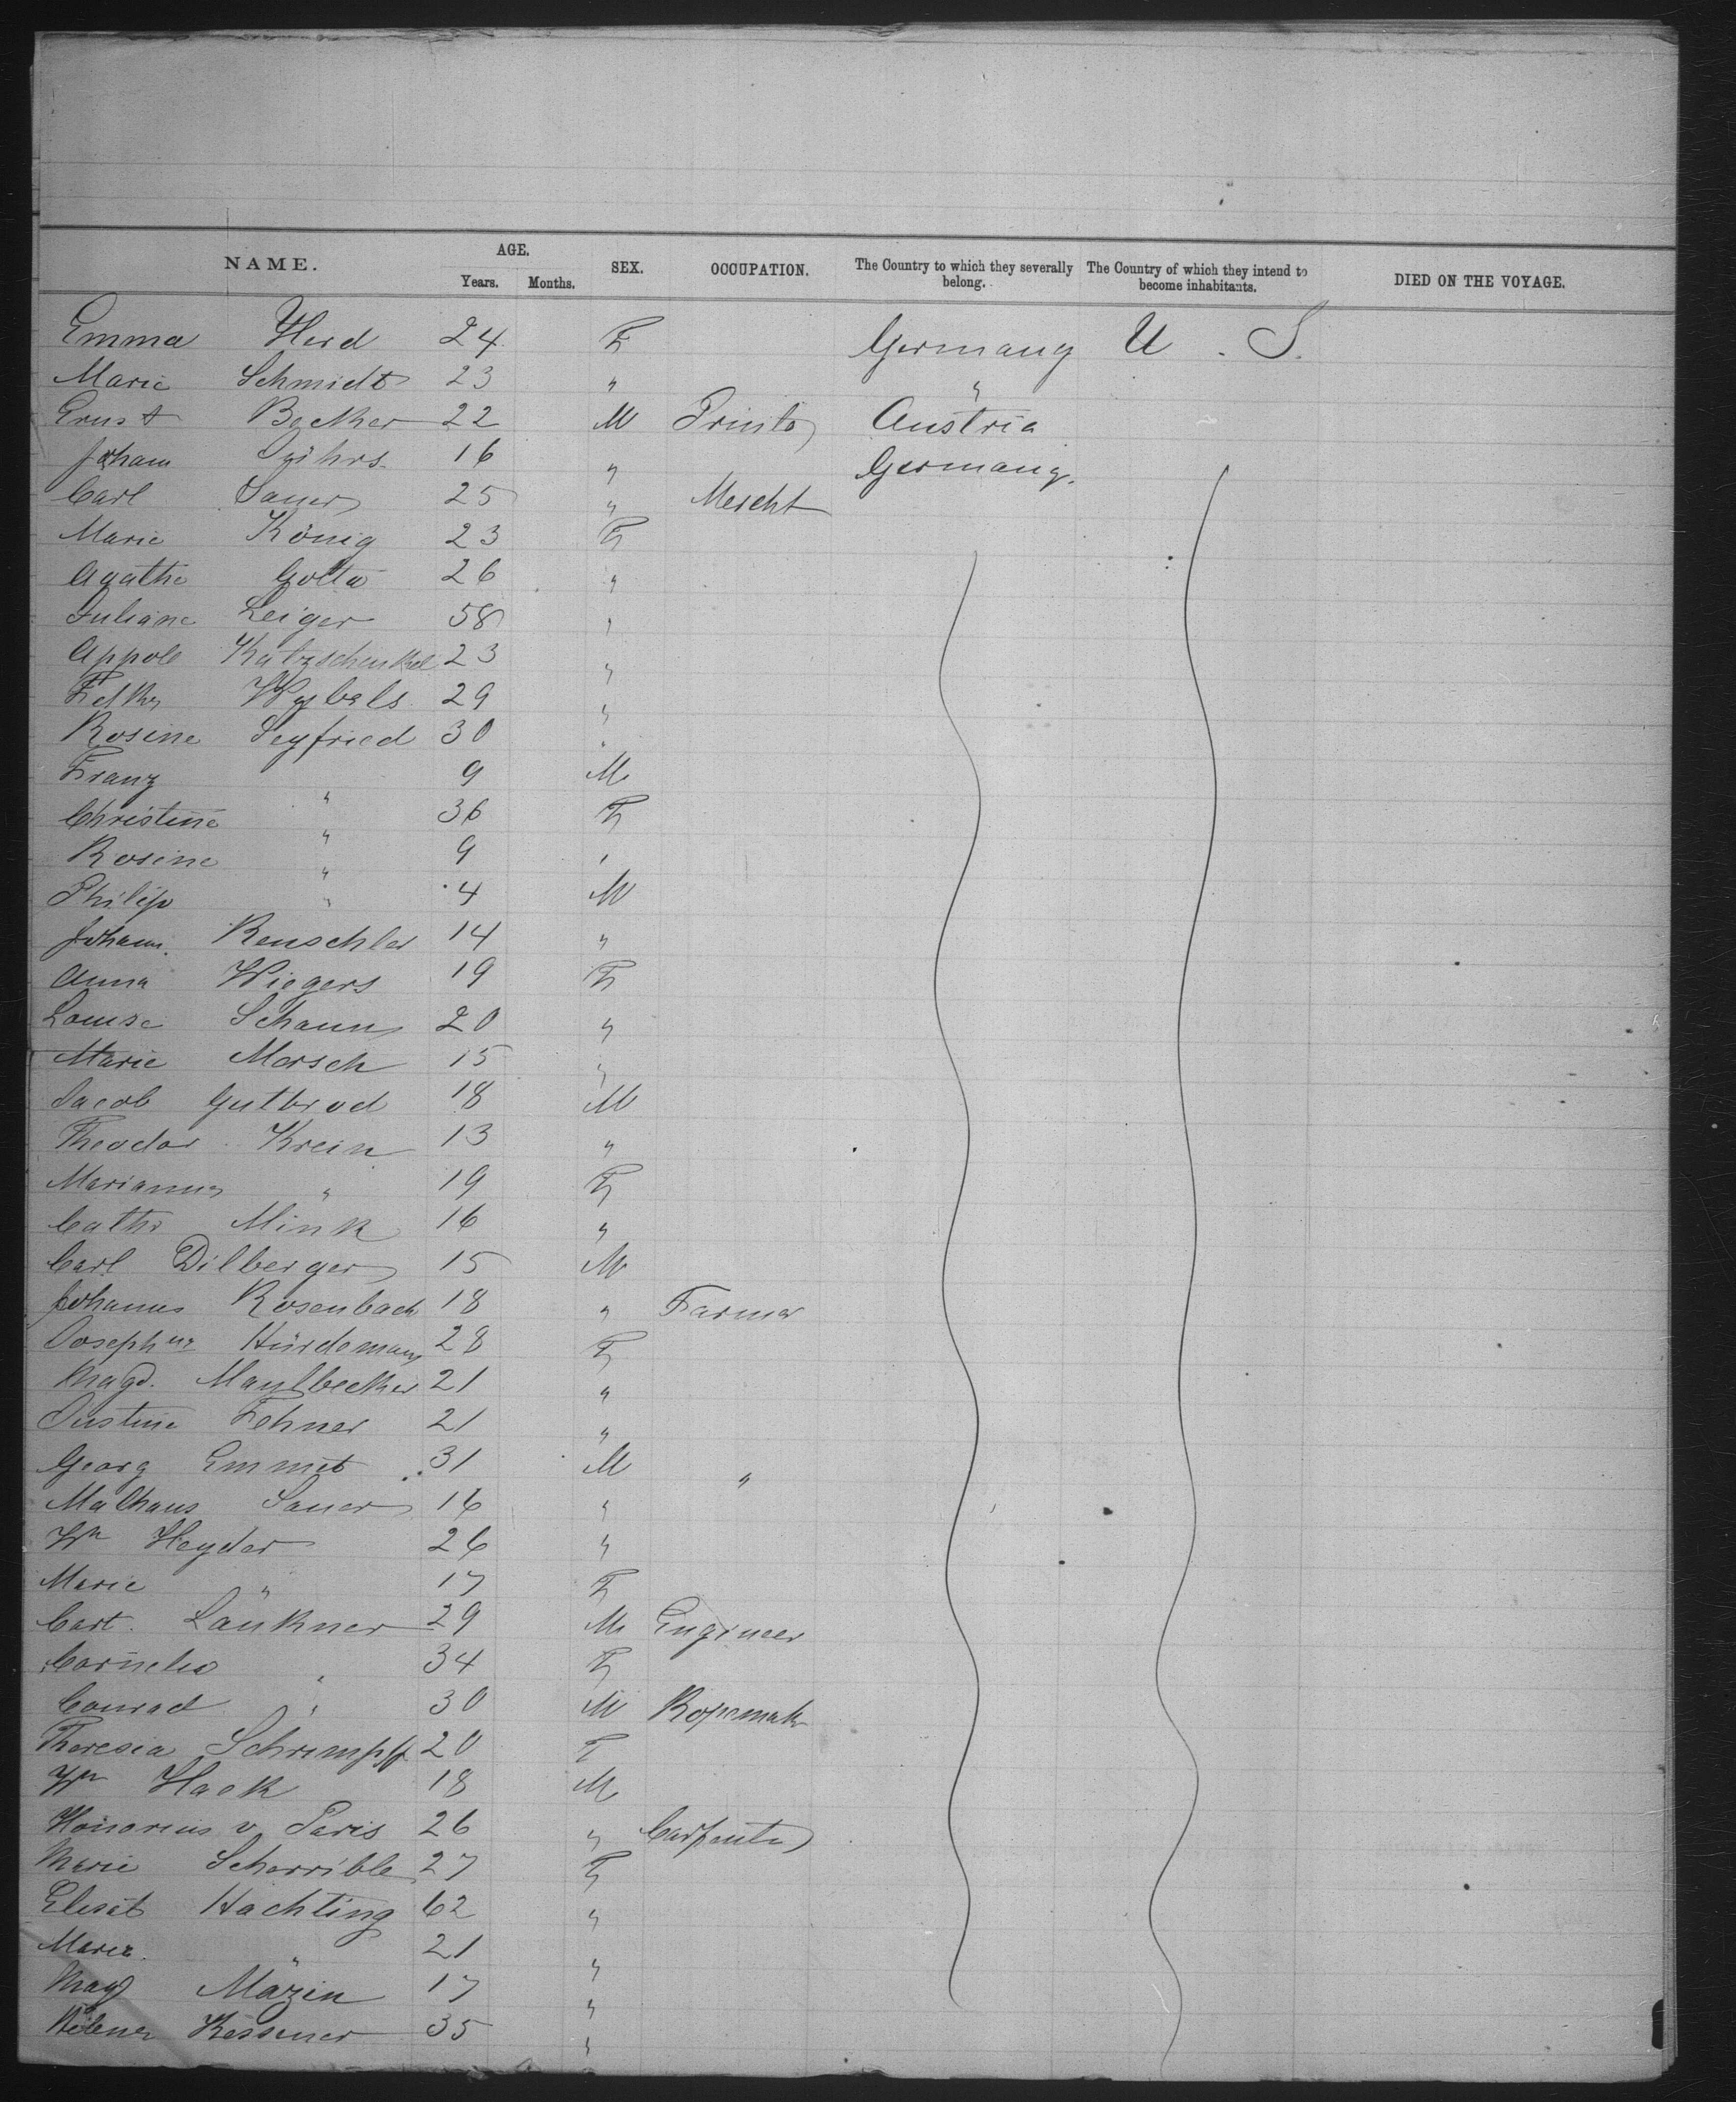 NAME. AGE. Years. Months. SEX. OCCUPATION. The Country to which they severally belong. The Country of which they intend to become inhabitants. DIED ON THE VOYAGE.
Emma Herd 24 F Germany U. S.
Marie Schmidt 23 " "
Ernst Becker 22 M Printer Austria
Johann 16 " Germany.
Carl Sauer 25 " Mercht
Marie König 23 F
Agathe 26 "
Juliane Leiger 58 "
Appole Katzschenkel 23 "
Wybels 29 "
Rosine Seyfried 30 "
Franz " 9 M
Christine " 36 F
Rosine " 9 "
Philip " 4 M
Johann. Renschler 14 "
Anna Wiegers 19 F
Louise Schaun 20 "
Marie Morsch 15 "
Jacob Gutbrod 18 M
Theodor Krein 13 "
Marianna " 19 F
Cathr Mink 16 "
Carl Dilberger 15 M
Johannes Rosenbach 18 " Farmer
Josephne Hürdemann 28 F
Magd. Maulbecker 21 "
Justine Fehner 21 "
Georg Emmet 31 M "
Mathaus Sauer 16 "
Wm Heyder 26 "
Marie " 17 F
Carl. Läukner 29 M Engineer
Cornelia " 34 F
Conrad " 30 M Ropemakr
Theresia Schrimpff 20 F
Wm Hack 18 M
Honorius v. Paris 26 " Carpenter
Marie Scherrible 27 F
Elisat Hachting 62 "
Marie. " 21 "
Magd Mäzin 17 "
Kessener 35 "